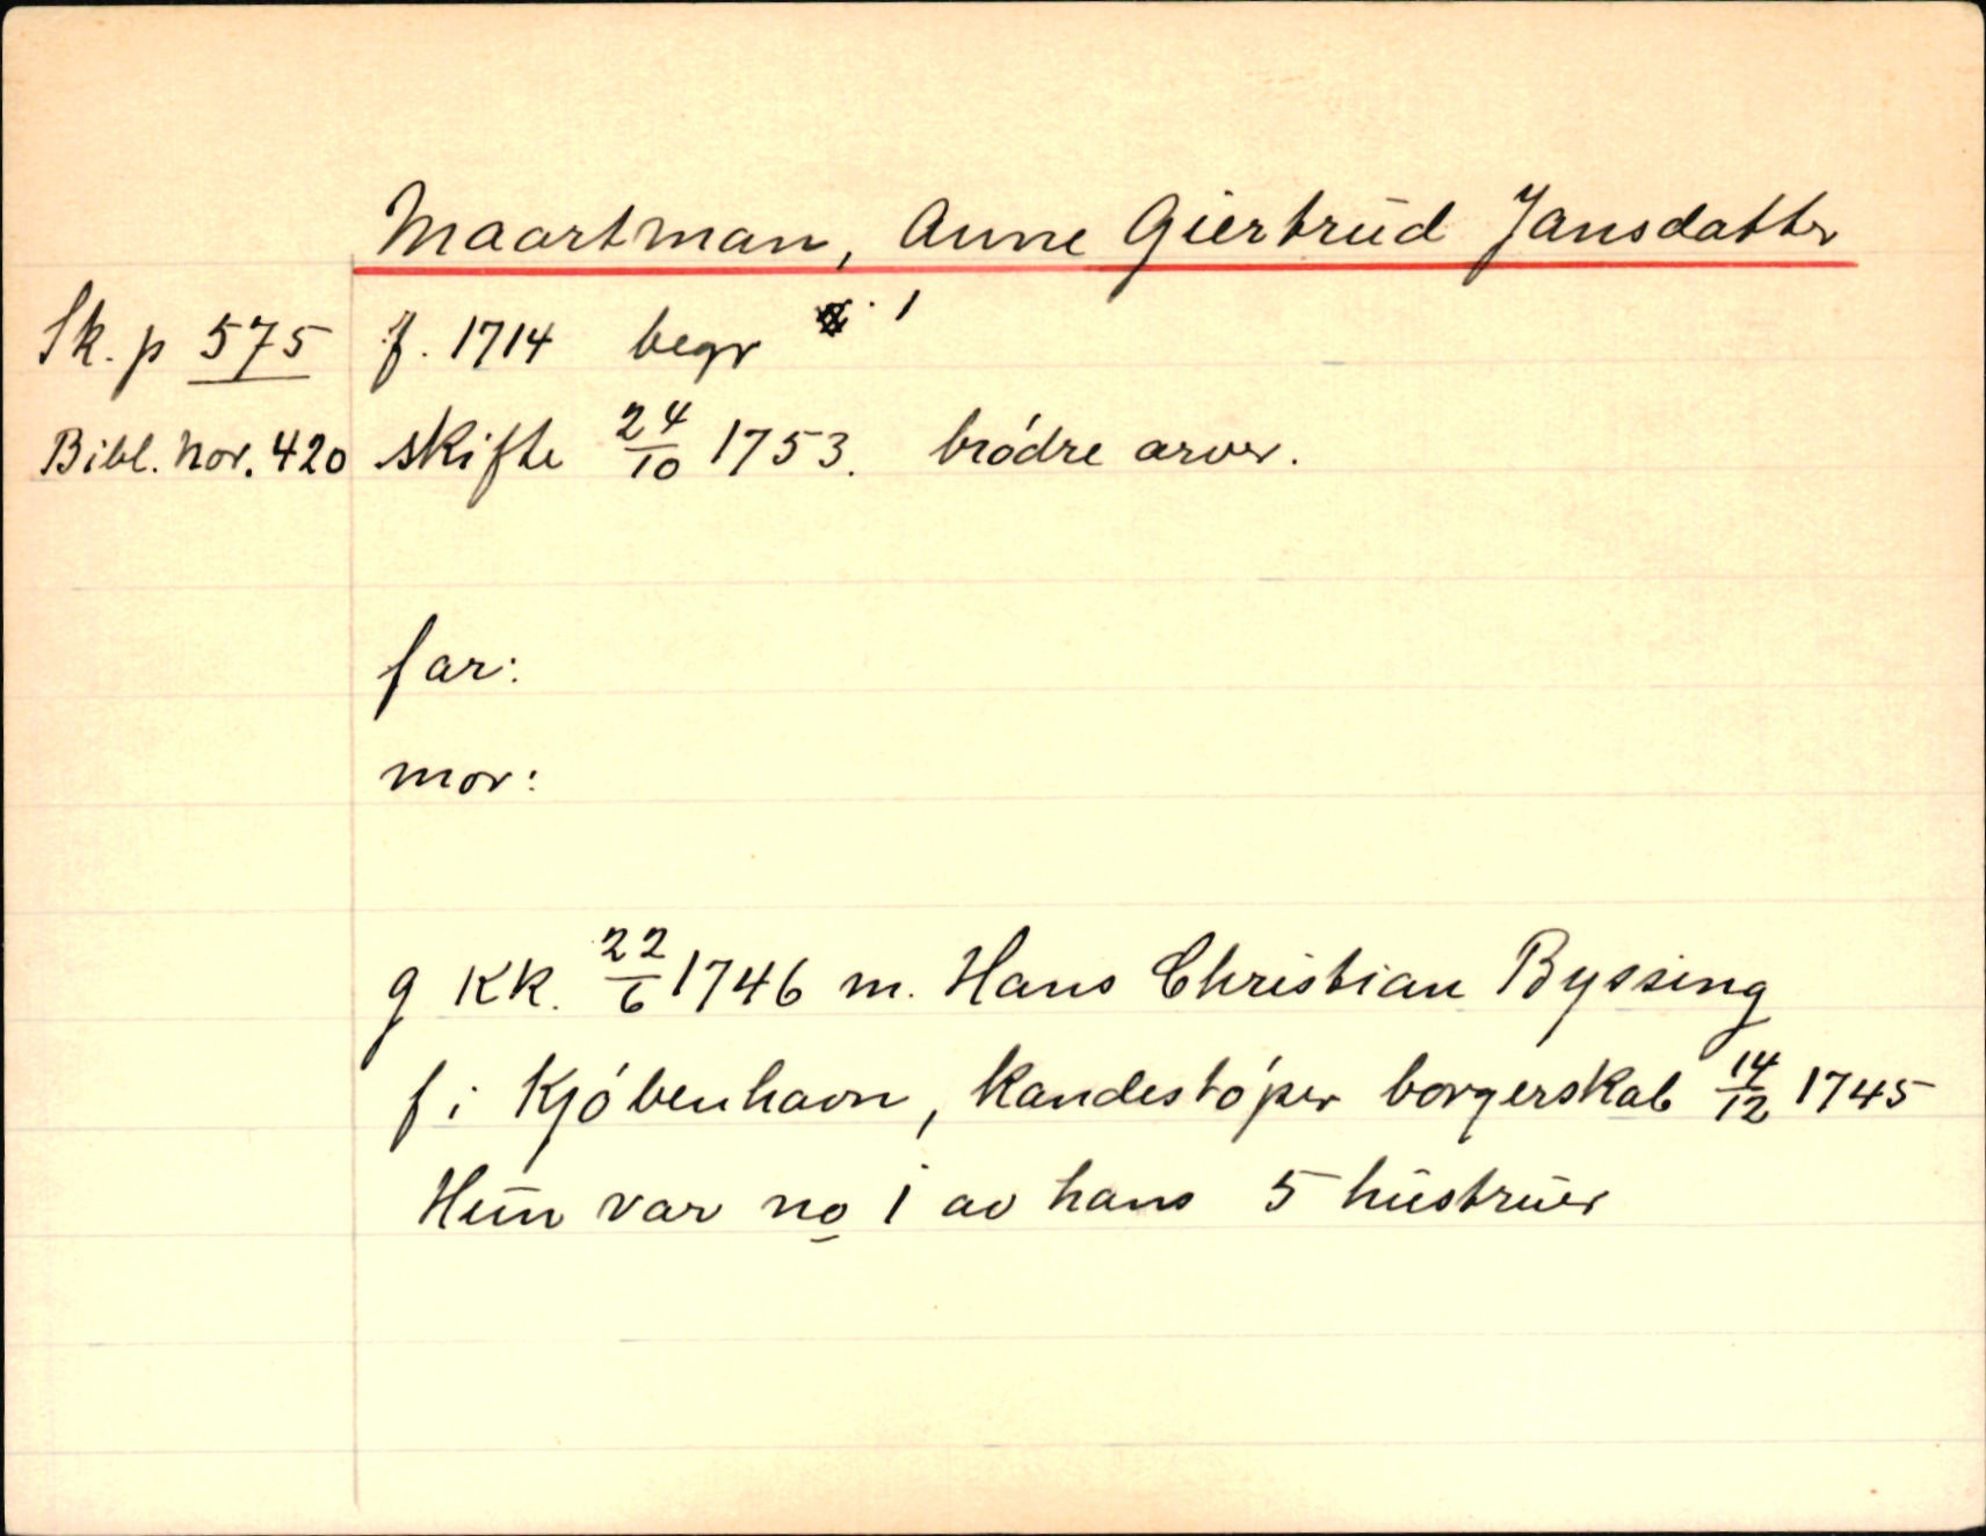 Maartman, Anne Giertrud Jansdatter
Sk. p 575 f. 1714 begr
Bibl. Nor. 420 skifte 24/10 1753. bródre arver.
far:
mor:
g KK. 22/6 1746 m. Hans Christian Byssing
f i Kjóbenhavn, Kandestóper borgerskab 14/12 1745
Hun var no 1 av hans 5 hustruer